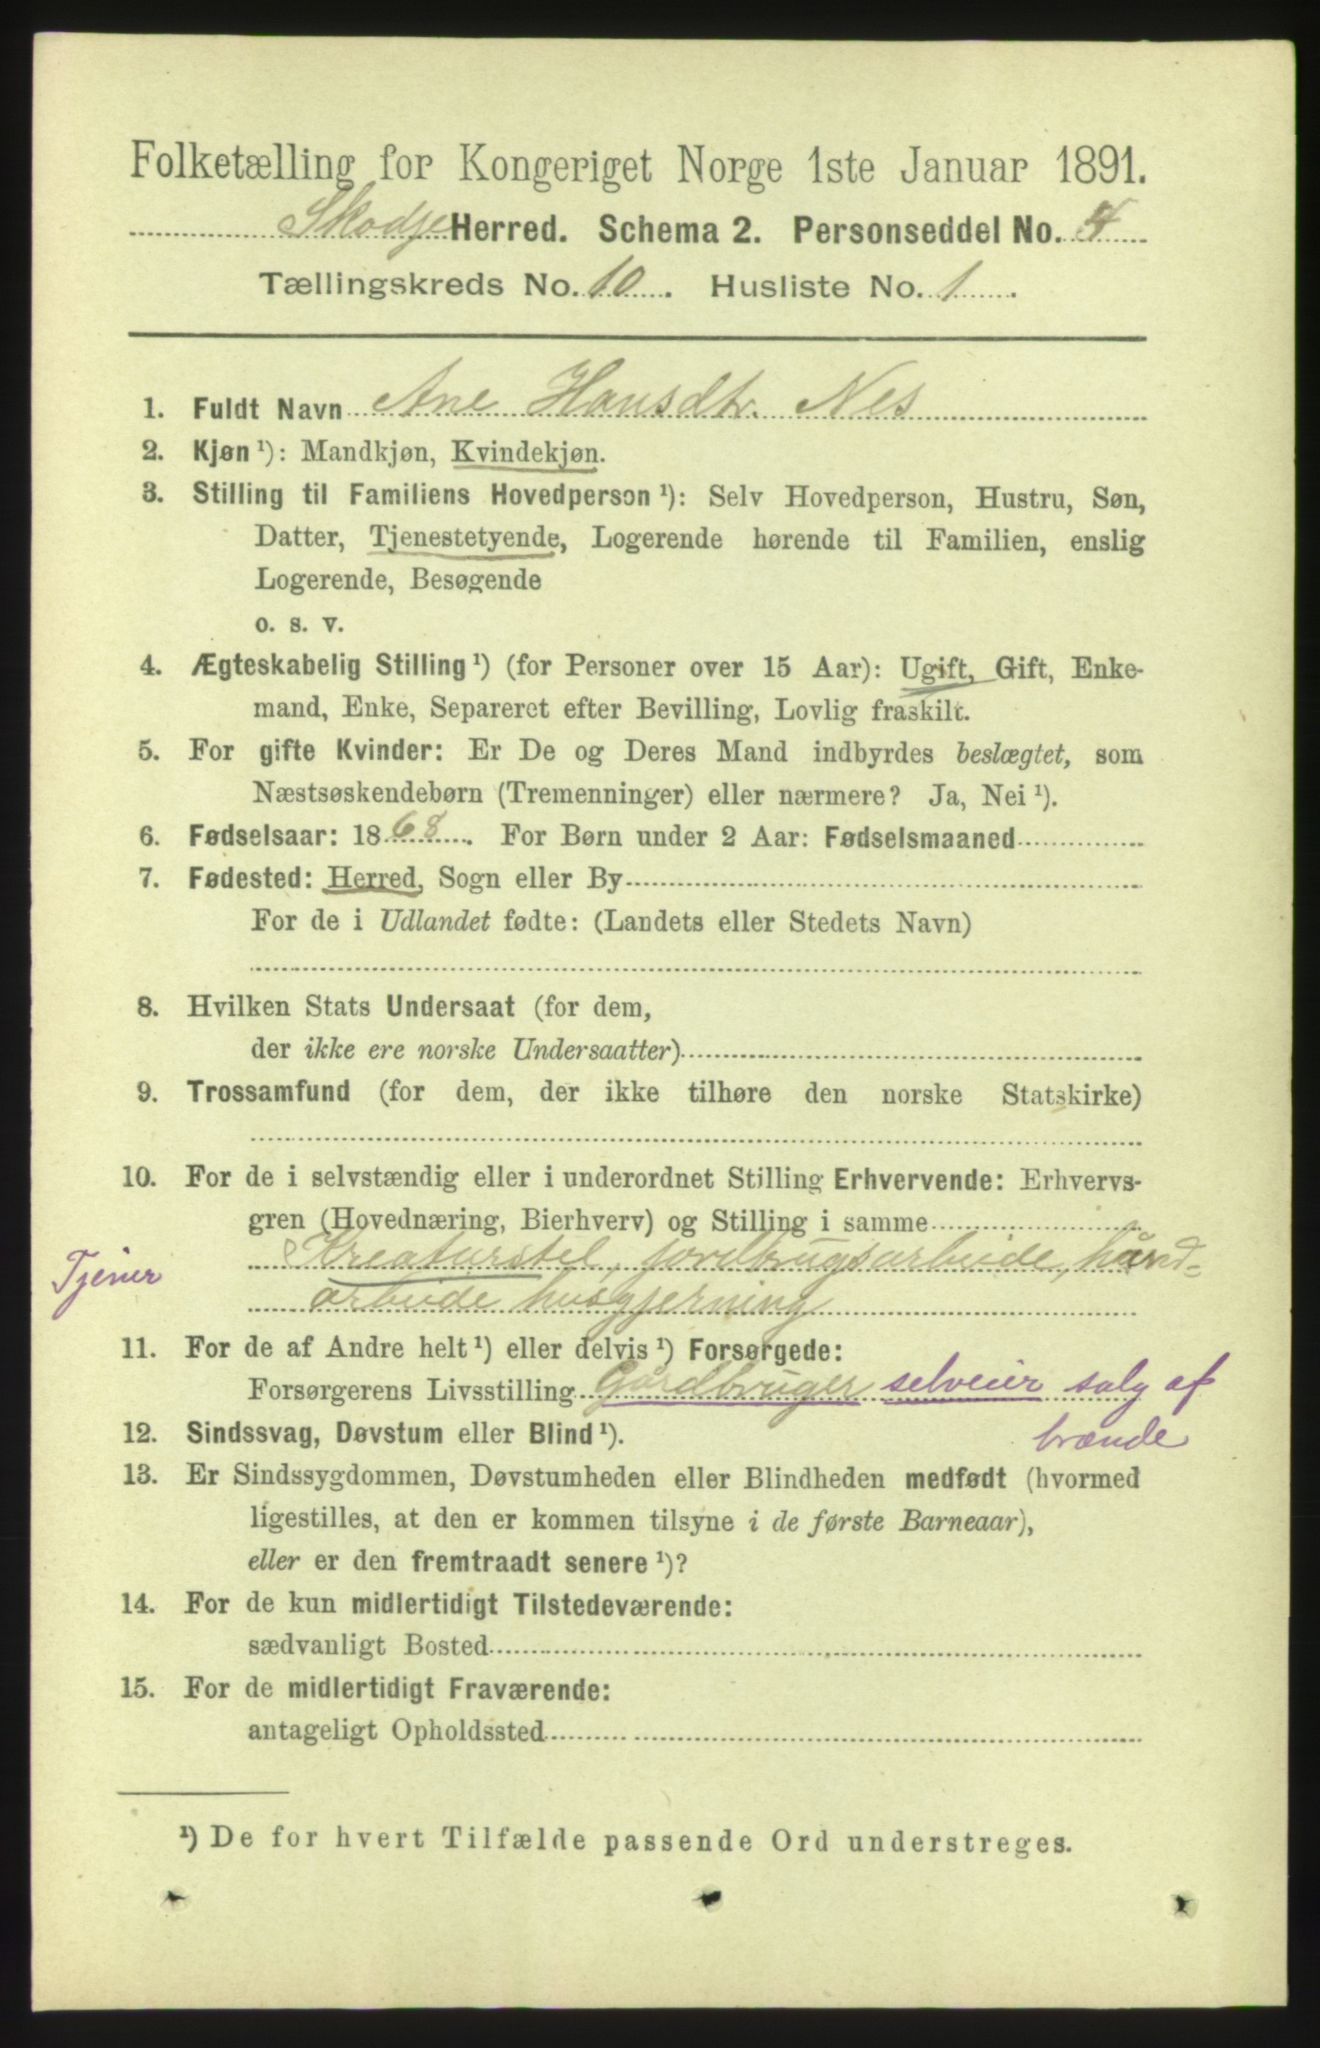 Folketælling for Kongeriget Norge 1ste Januar 1891.
Skodje Herred. Schema 2. Personseddel No. 4
Tællingskreds No. 10. Husliste No. 1.
1. Fuldt Navn Ane Hansdtr. Nes
2. Kjøn ¹): Mandkjøn, Kvindekjøn.
3. Stilling til Familiens Hovedperson ¹): Selv Hovedperson, Hustru, Søn,
Datter, Tjenestetyende, Logerende hørende til Familien, enslig
Logerende, Besøgende
o. s. v.
4. Ægteskabelig Stilling ¹) (for Personer over 15 Aar): Ugift, Gift, Enke-
mand, Enke, Separeret efter Bevilling, Lovlig fraskilt.
5. For gifte Kvinder: Er De og Deres Mand indbyrdes beslægtet, som
Næstsøskendebørn (Tremenninger) eller nærmere? Ja, Nei ¹).
6. Fødselsaar: 1868. For Børn under 2 Aar: Fødselsmaaned
7. Fødested: Herred, Sogn eller By
For de i Udlandet fødte: (Landets eller Stedets Navn)
8. Hvilken Stats Undersaat (for dem,
der ikke ere norske Undersaatter)
9. Trossamfund (for dem, der ikke tilhøre den norske Statskirke)
10. For de i selvstændig eller i underordnet Stilling Erhvervende: Erhvervs-
gren (Hovednæring, Bierhverv) og Stilling i samme
Tjener Kreaturstel, jordbrugsarbeide, hånd-
arbeide husgjerning
11. For de af Andre helt ¹) eller delvis ¹) Forsørgede:
Forsørgerens Livsstilling Gårdbruger selveier salg af
brænde
12. Sindssvag, Døvstum eller Blind ¹).
13. Er Sindssygdommen, Døvstumheden eller Blindheden medfødt (hvormed
ligestilles, at den er kommen tilsyne i de første Barneaar),
eller er den fremtraadt senere ¹)?
14. For de kun midlertidigt Tilstedeværende:
sædvanligt Bosted
15. For de midlertidigt Fraværende:
antageligt Opholdssted
¹) De for hvert Tilfælde passende Ord understreges.